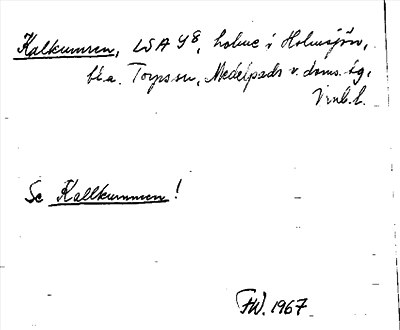 Kalkummen, LSA Y8, holme i Holmsjön,
bl.a. Torps sn, Medelpads v. doms. tg,
Vnl. l.
Se Kallkummen!
FW. 1967